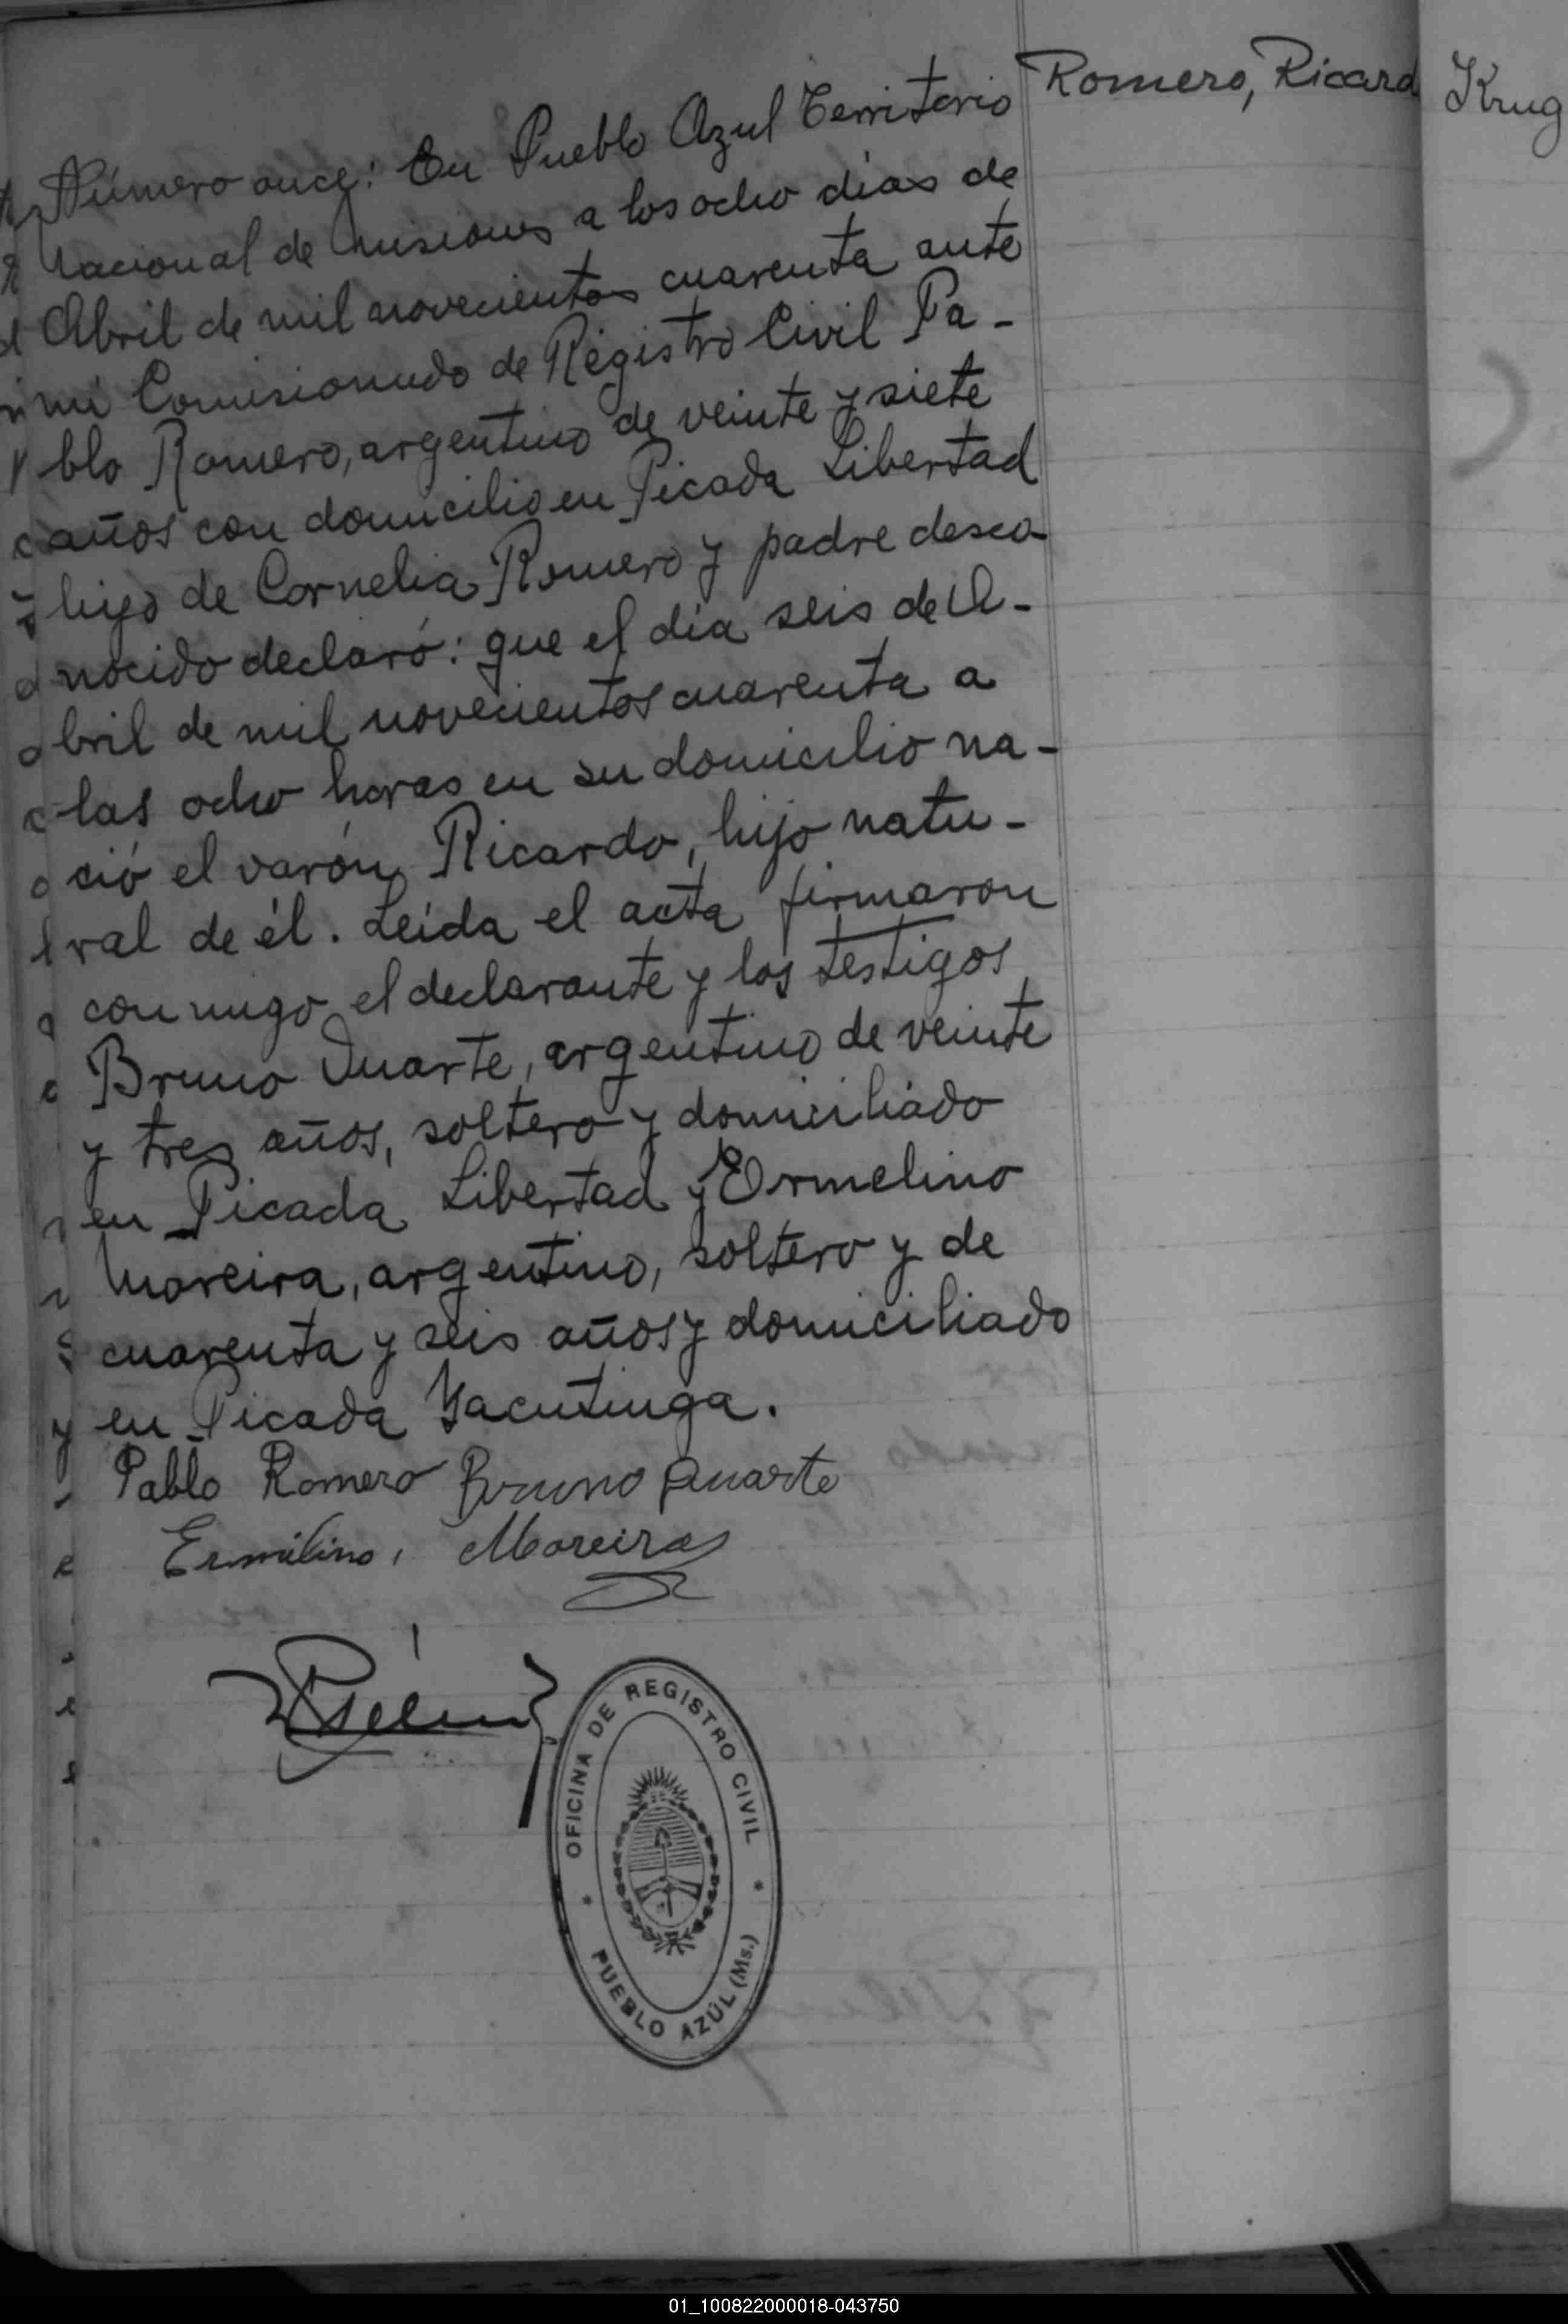 Romero, Ricard
Krug
Número once: En Pueblo Azul Territorio
Nacional de Misiones a los ocho días de
Abril de mil novecientos cuarenta ante
mi Comisionado de Registro Civil Pa-
blo Romero, argentino de veinte y siete
años con domicilio en Picada Libertad
hijo de Cornelia Romero y padre desco-
nocido declaró: que el día seis de A-
bril de mil novecientos cuarenta a
las ocho horas en su domicilio na-
ció el varón Ricardo, hijo natu-
ral de él. Leída el acta firmaron
conmigo el declarante y los testigos
Bruno Duarte, argentino de veinte
y tres años, soltero y domiciliado
en Picada Libertad y Ermelino
Moreira, argentino, soltero y de
cuarenta y seis años y domiciliado
en Picada Yacutinga.
Pablo Romero Bruno Duarte
Ermilino, Moreira
OFICINA DE REGISTRO CIVIL
* PUEBLO AZÚL (Ms.) *
01_100822000018-043750